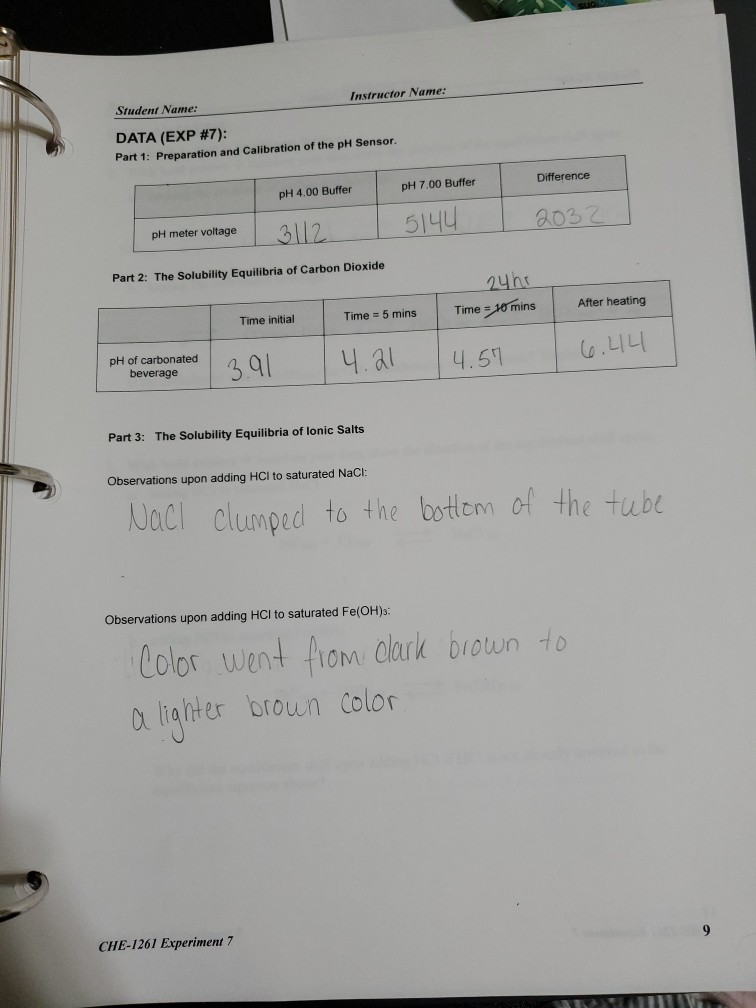 Student Name:
Instructor Name:
DATA (EXP #7):
Part 1: Preparation and Calibration of the pH Sensor.
pH 4.00 Buffer pH 7.00 Buffer Difference
pH meter voltage 3112 5144 2032
Part 2: The Solubility Equilibria of Carbon Dioxide
24hr
Time initial Time = 5 mins Time = 10 mins After heating
pH of carbonated
beverage
3.91 4.21 4.57 6.44
Part 3: The Solubility Equilibria of Ionic Salts
Observations upon adding HCl to saturated NaCl:
NaCl clumped to the bottom of the tube
Observations upon adding HCl to saturated Fe(OH)₃:
Color went from dark brown to
a lighter brown color
CHE-1261 Experiment 7
9